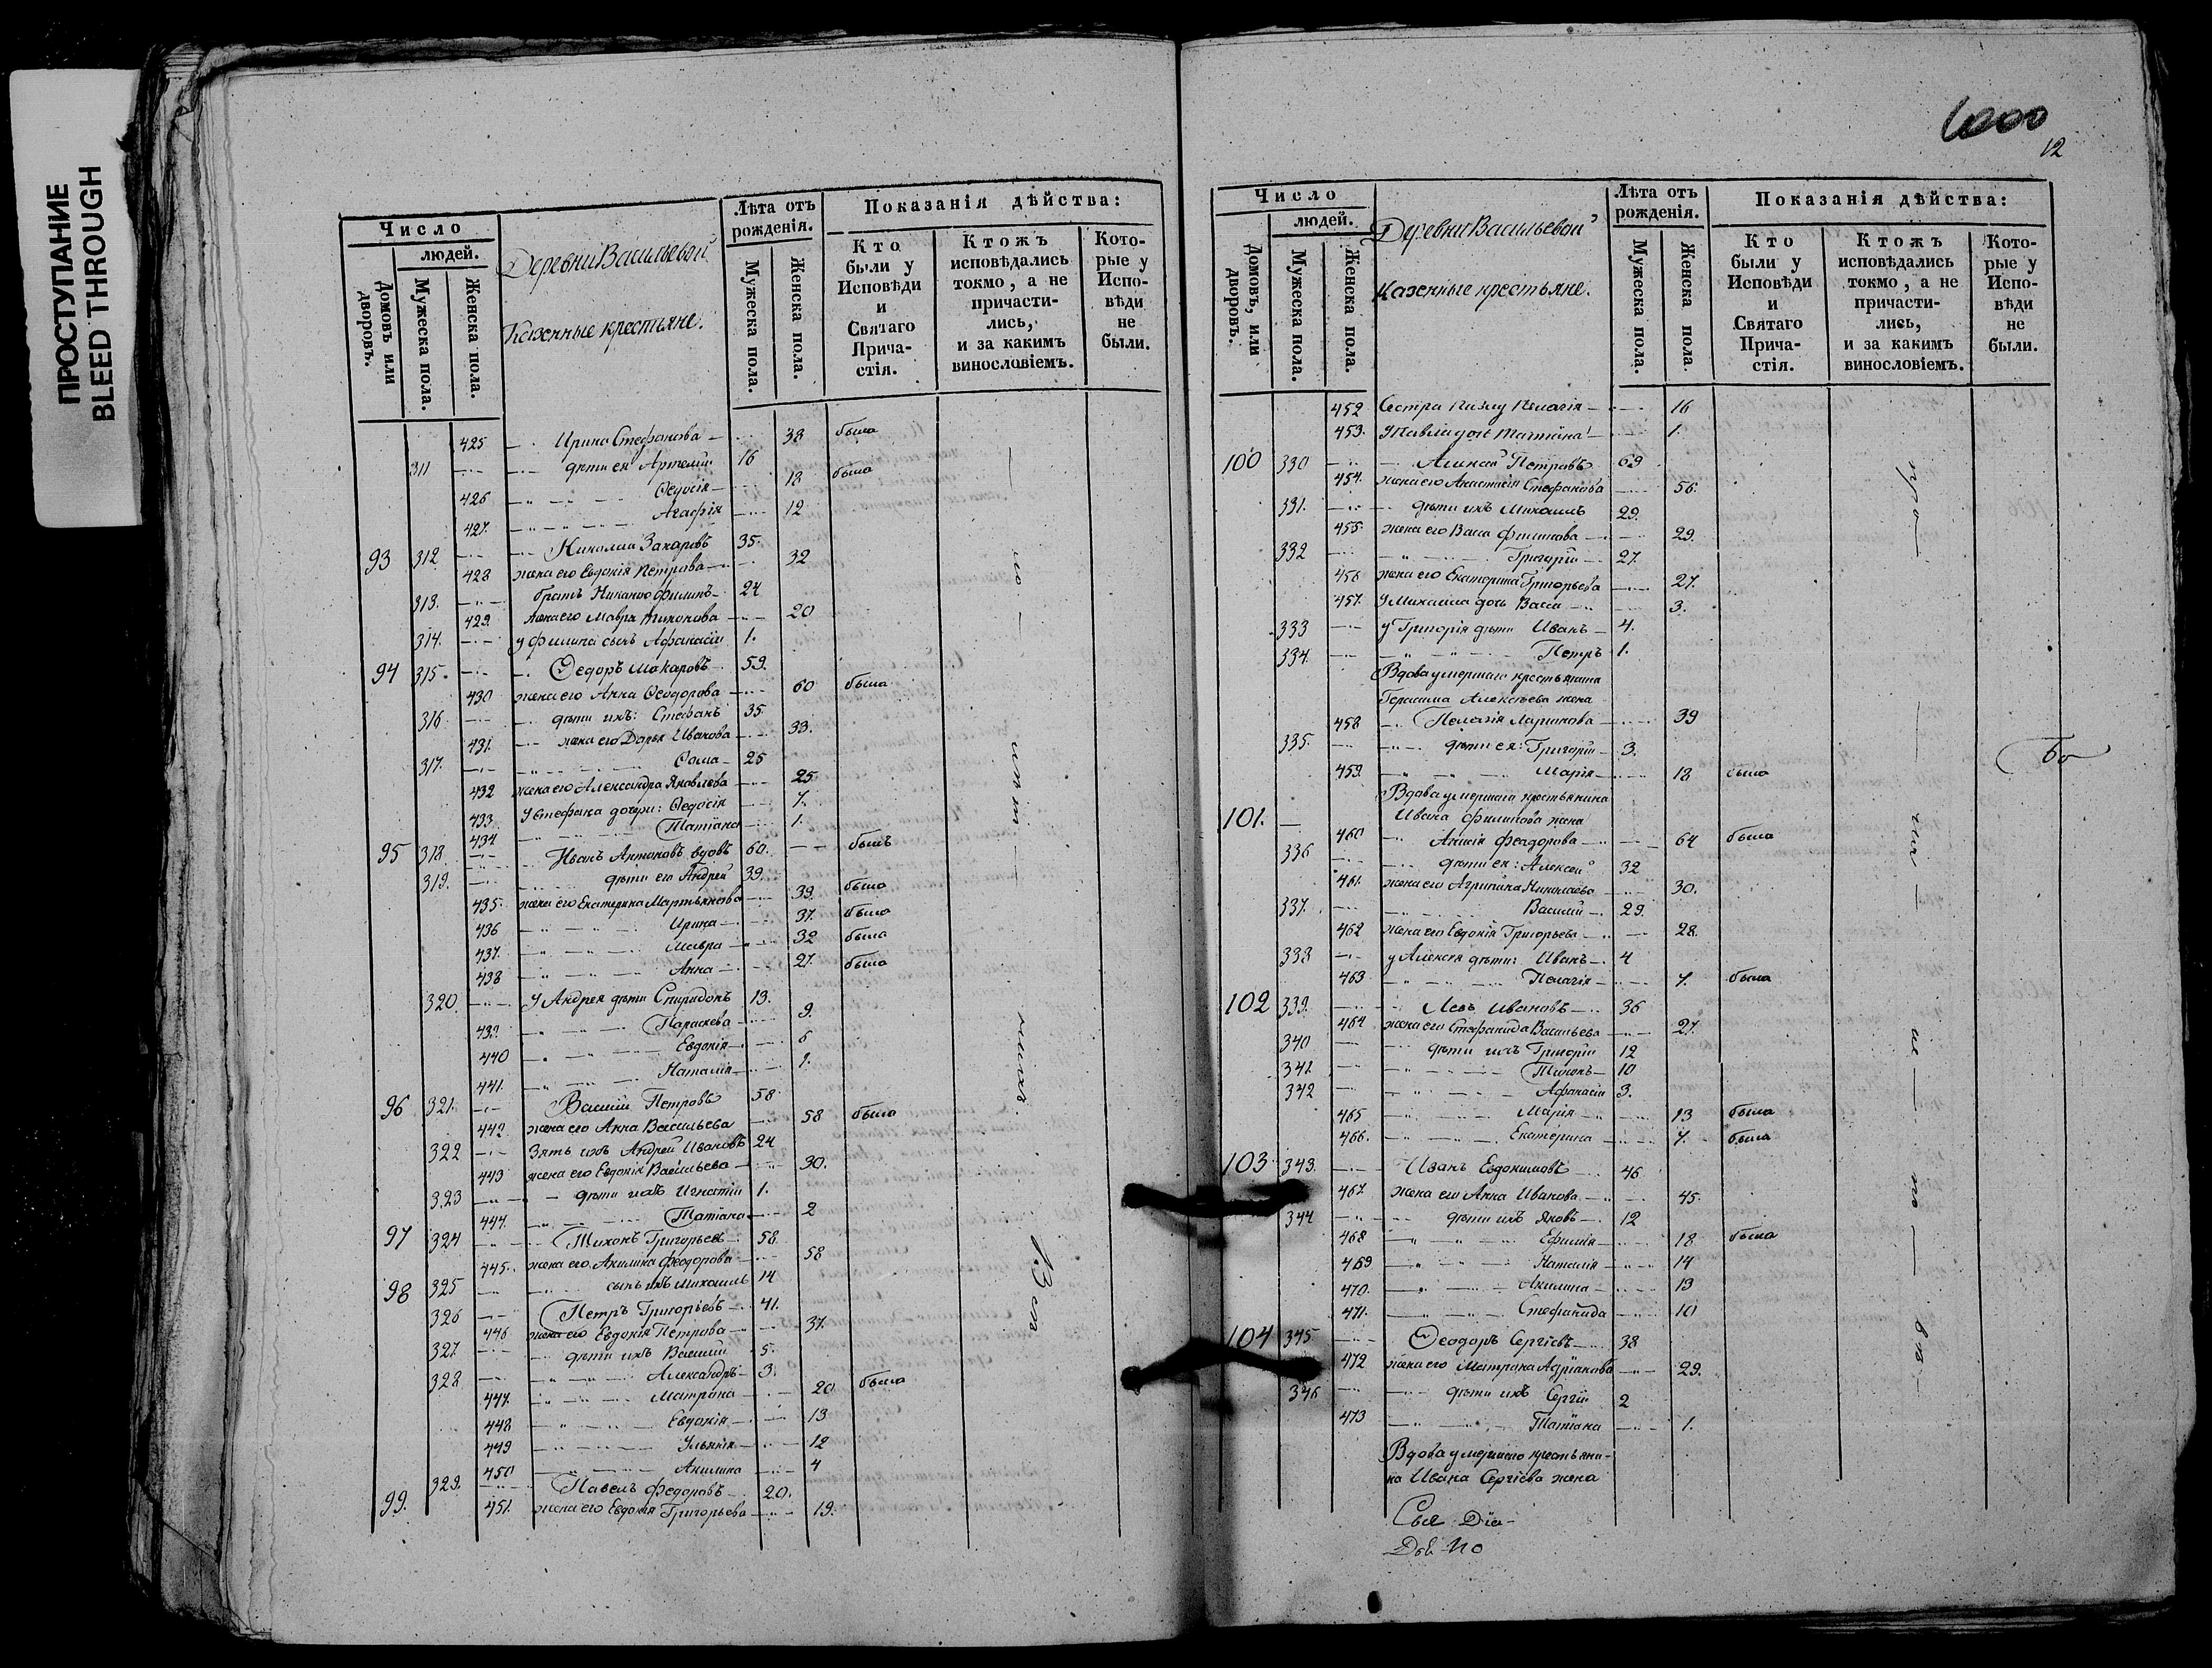 ПРОСТУПАНИЕ
BLEED THROUGH
Число
людей.
Домовъ или дворовъ.
Мужеска пола.
Женска пола.
Деревни Васильевой
Казенные крестьяне.
Лѣта отъ рожденія.
Мужеска пола.
Женска пола.
Показанія дѣйства:
Кто были у Исповѣди и Святаго Прича- стія.
Ктожъ исповѣдались токмо, а не причасти- лись, и за какимъ винословіемъ.
Кото- рые у Испо- вѣди не были.
425 Ирина Стефанова 38 была
311 дѣти ея Артемій 16
426 Ѳедосія 18 была
427. Агафія 12
93 312 Николай Захаровъ 35.
428 жена его Евдокія Петрова 32
313. братъ Филипъ 24
429. жена его Мавра Тихонова 20
314. у Филипа сынъ Афанасій 1.
94 315. Ѳедоръ Макаровъ 59.
430 жена его Анна Ѳеодорова 60 была
316 дѣти ихъ: Стефанъ 35.
431. жена его Дарья Иванова 33.
317. Ѳома 25
432 жена его Александра Яковлева 25
433 У Стефана дочери: Ѳедосія 7.
434 Татіана 1.
95 318 Иванъ Антоновъ вдовъ 60. былъ
319. дѣти его Андрей 39.
435. жена его Екатерина Мартынова 39. была
436 Ирина 37. была
437. Мавра 32 была
438 Анна 27. была
320. У Андрея дѣти Спиридонъ 13.
439. Параскева 9.
440 Евдокія 6
441. Наталія 1.
96 321. Василій Петровъ 58
442. жена его Анна Васильева 58 была
322 Зять ихъ Андрей Ивановъ 24
443 жена его Евдокія Васильева 30.
323 дѣти ихъ Игнатій 1.
444. Татіана 2
97 324 Тихонъ Григорьевъ 58
445. жена его Акилина Феодорова 58
98 325 сынъ ихъ Михаилъ 14
326 Петръ Григорьевъ 41.
446 жена его Евдокія Петрова 37.
327. дѣти ихъ Василій 5.
328 Александръ 3.
447. Матрона 20 была
448 Евдокія 13
449 Ульянія 12
450 Акилина 4
99. 329. Павелъ Федоровъ 20.
451. жена его Евдокія Григорьева 19.
12
Число
людей.
Домовъ, или дворовъ.
Мужеска пола.
Женска пола.
Деревни Васильевой
Казенные крестьяне.
Лѣта отъ рожденія.
Мужеска пола.
Женска пола
Показанія дѣйства:
Кто были у Исповѣди и Святаго Прича- стія.
Ктожъ исповѣдались токмо, а не причасти- лись, и за какимъ винословіемъ.
Кото- рые у Испо- вѣди не были.
452 Сестра Пелагія 16
453. У Павла дочь 1.
100 330 Петровъ 69
454. жена его Анастасія Стефанова 56.
331. дѣти ихъ Михаилъ 29.
455. жена его Васса Филипова 29.
332 Григорій 27.
456 жена его Екатерина Григорьева 27.
457. У Михаила дочь Васса 3.
333 у Григорія дѣти Иванъ 4.
334. Петръ 1.
Вдова умершаго крестьянина
Герасима Алексѣева жена
458 Пелагія Ларіонова 39
335. дѣти ея: Григорій 3.
459. Марія 18 была
Вдова умершаго крестьянина
101. Ивана Филипова жена
460 Феодорова 64 была
336 дѣти ея: Алексей 32
461. жена его Агрипина Николаева 30.
337. Василій 29.
462 жена его Евдокія Григорьева 28.
338 у Алексея дѣти: Иванъ 4
463 Пелагія 7. была
102 339. Левъ Ивановъ 36
464 жена его Стефанида Васильева 27.
340 дѣти ихъ Григорій 12
341 Тихонъ 10
342 Афанасій 3.
465 Марія 13 была
466. Екатерина 7. была
103 343. Иванъ Евдокимовъ 46
467 жена его Анна Иванова 45.
344 дѣти ихъ Яковъ 12
468 Ефимія 18 была
469 Наталія 14
470. Акилина 13
471. Стефанида 10
104 345 Ѳеодоръ Сергіевъ 38
472 жена его Матрона Адріанова 29.
346 дѣти ихъ Сергій 2
473 Татіана 1.
Вдова умершаго крестьяни-
на Ивана Сергіева жена